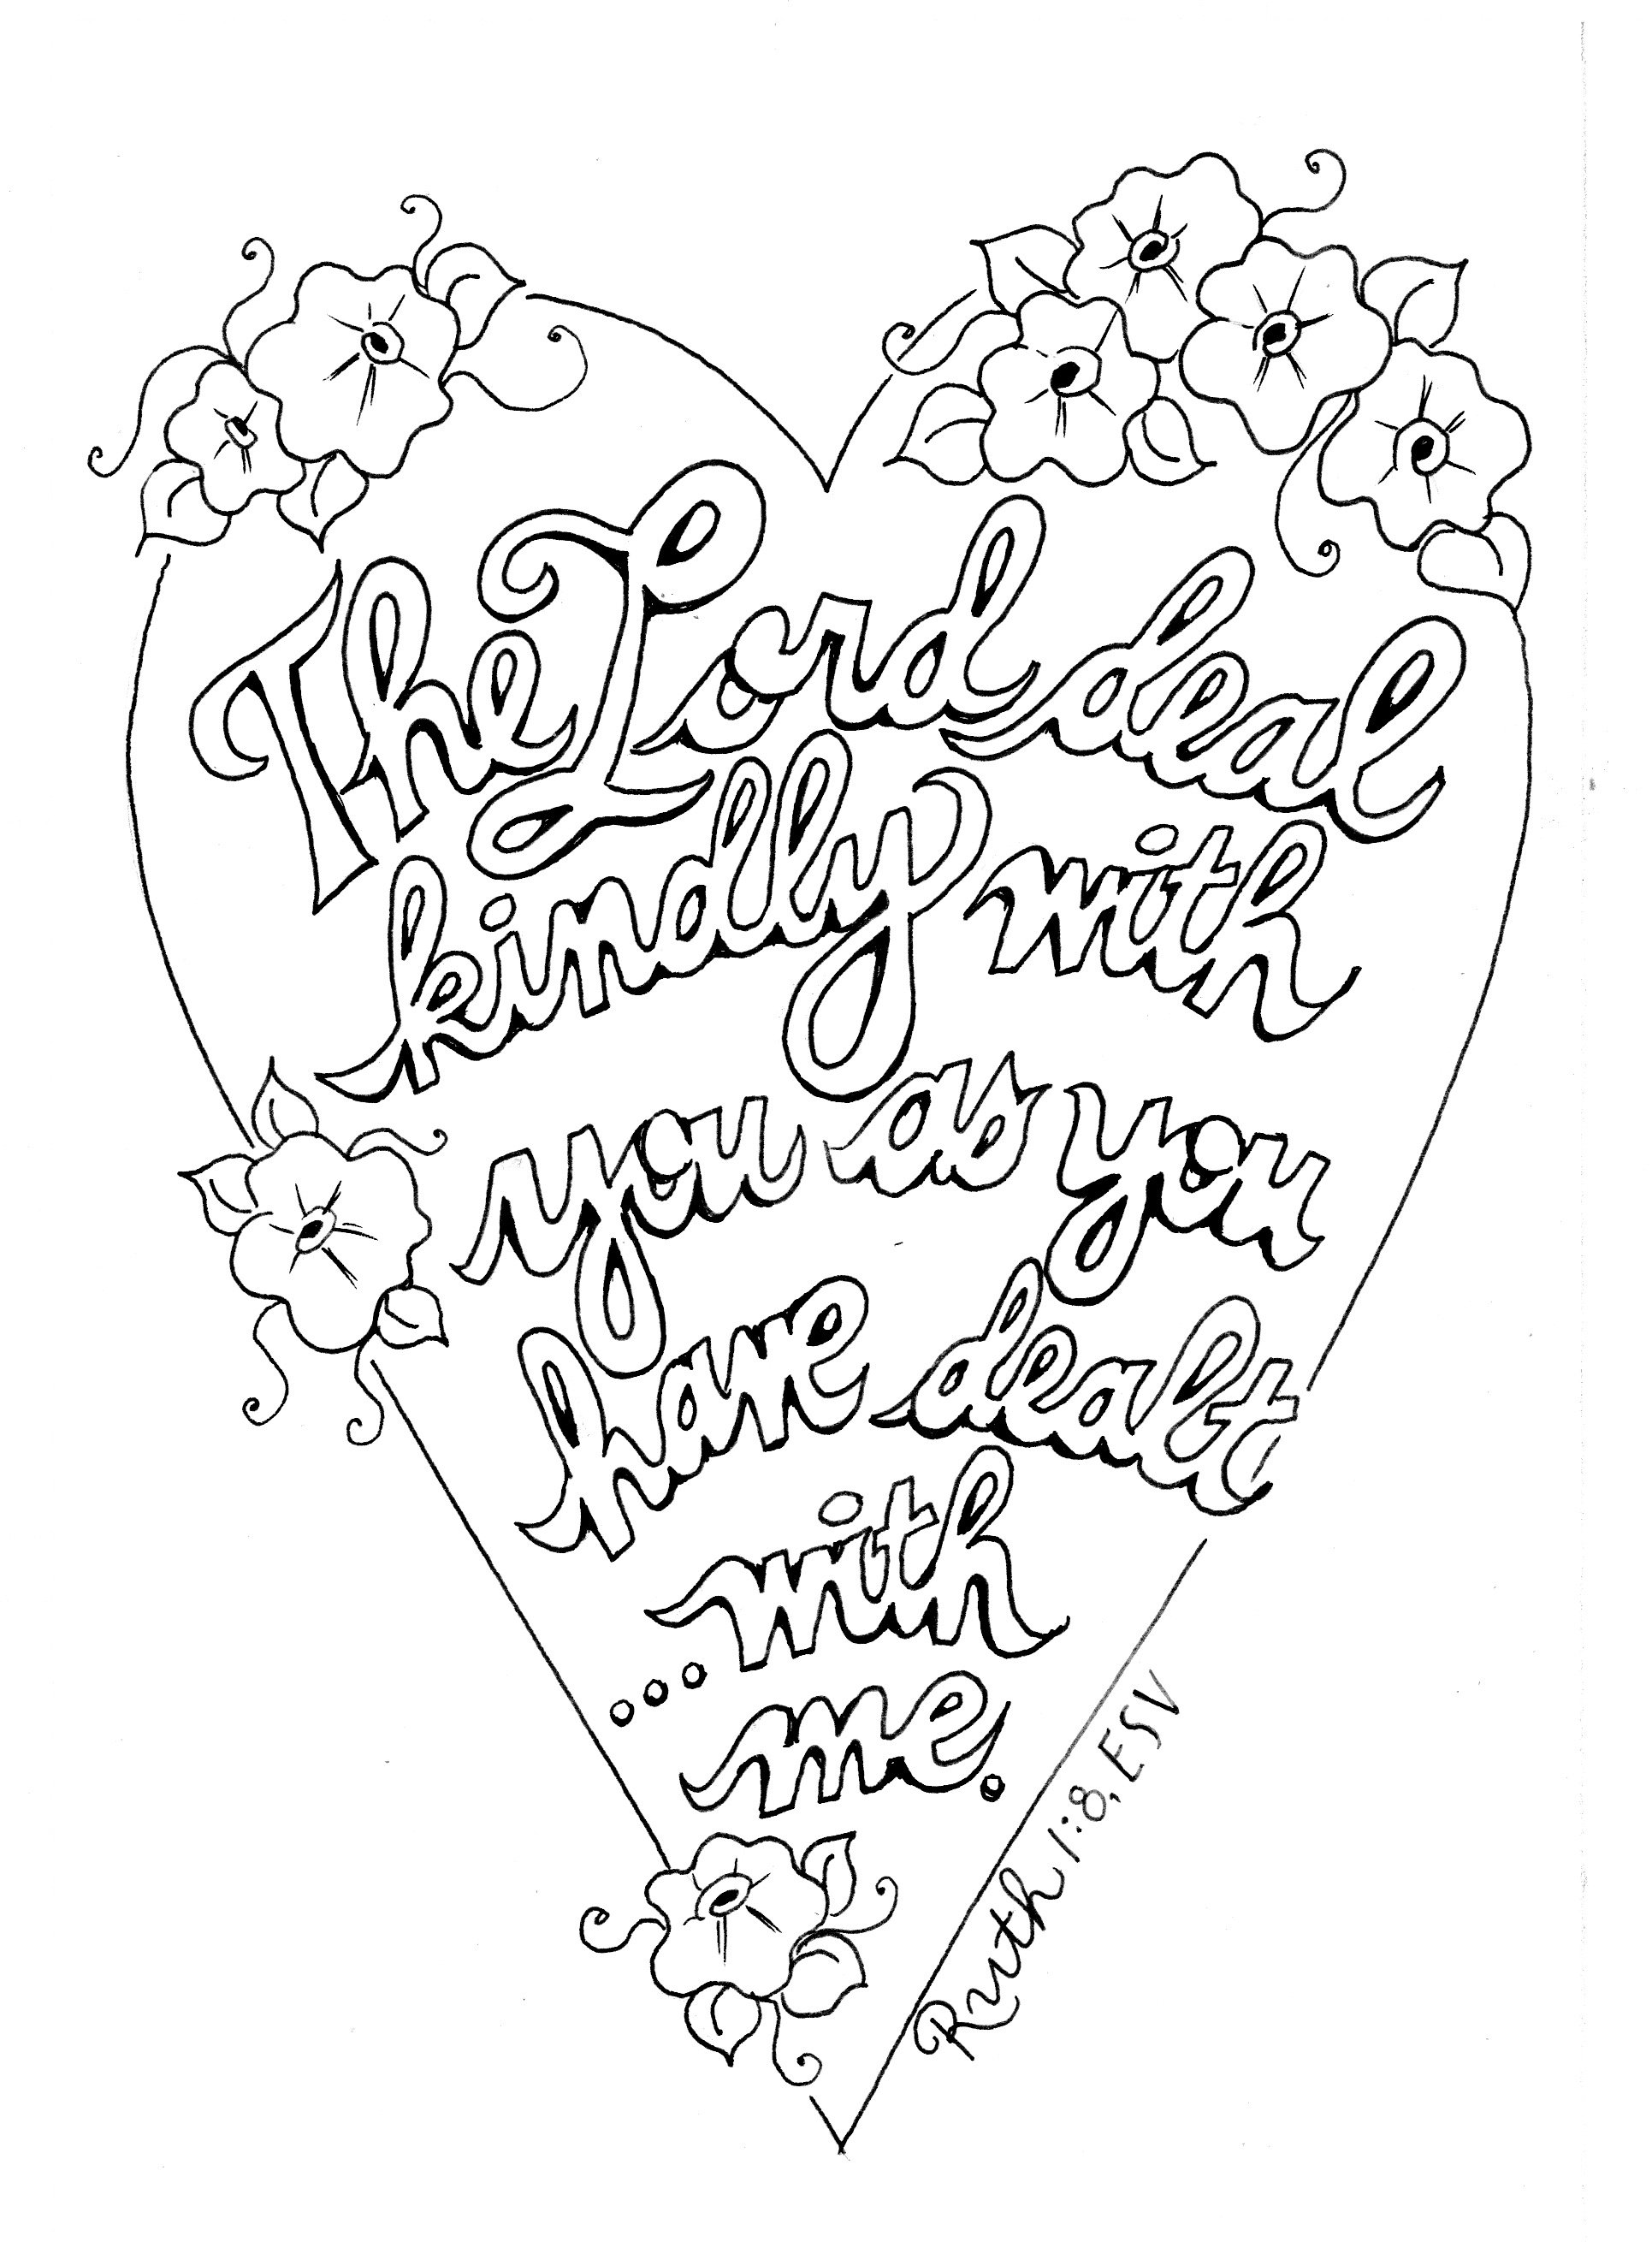 The Lord deal
kindly with
you as you
have dealt
...with
me.
Ruth 1:8, ESV